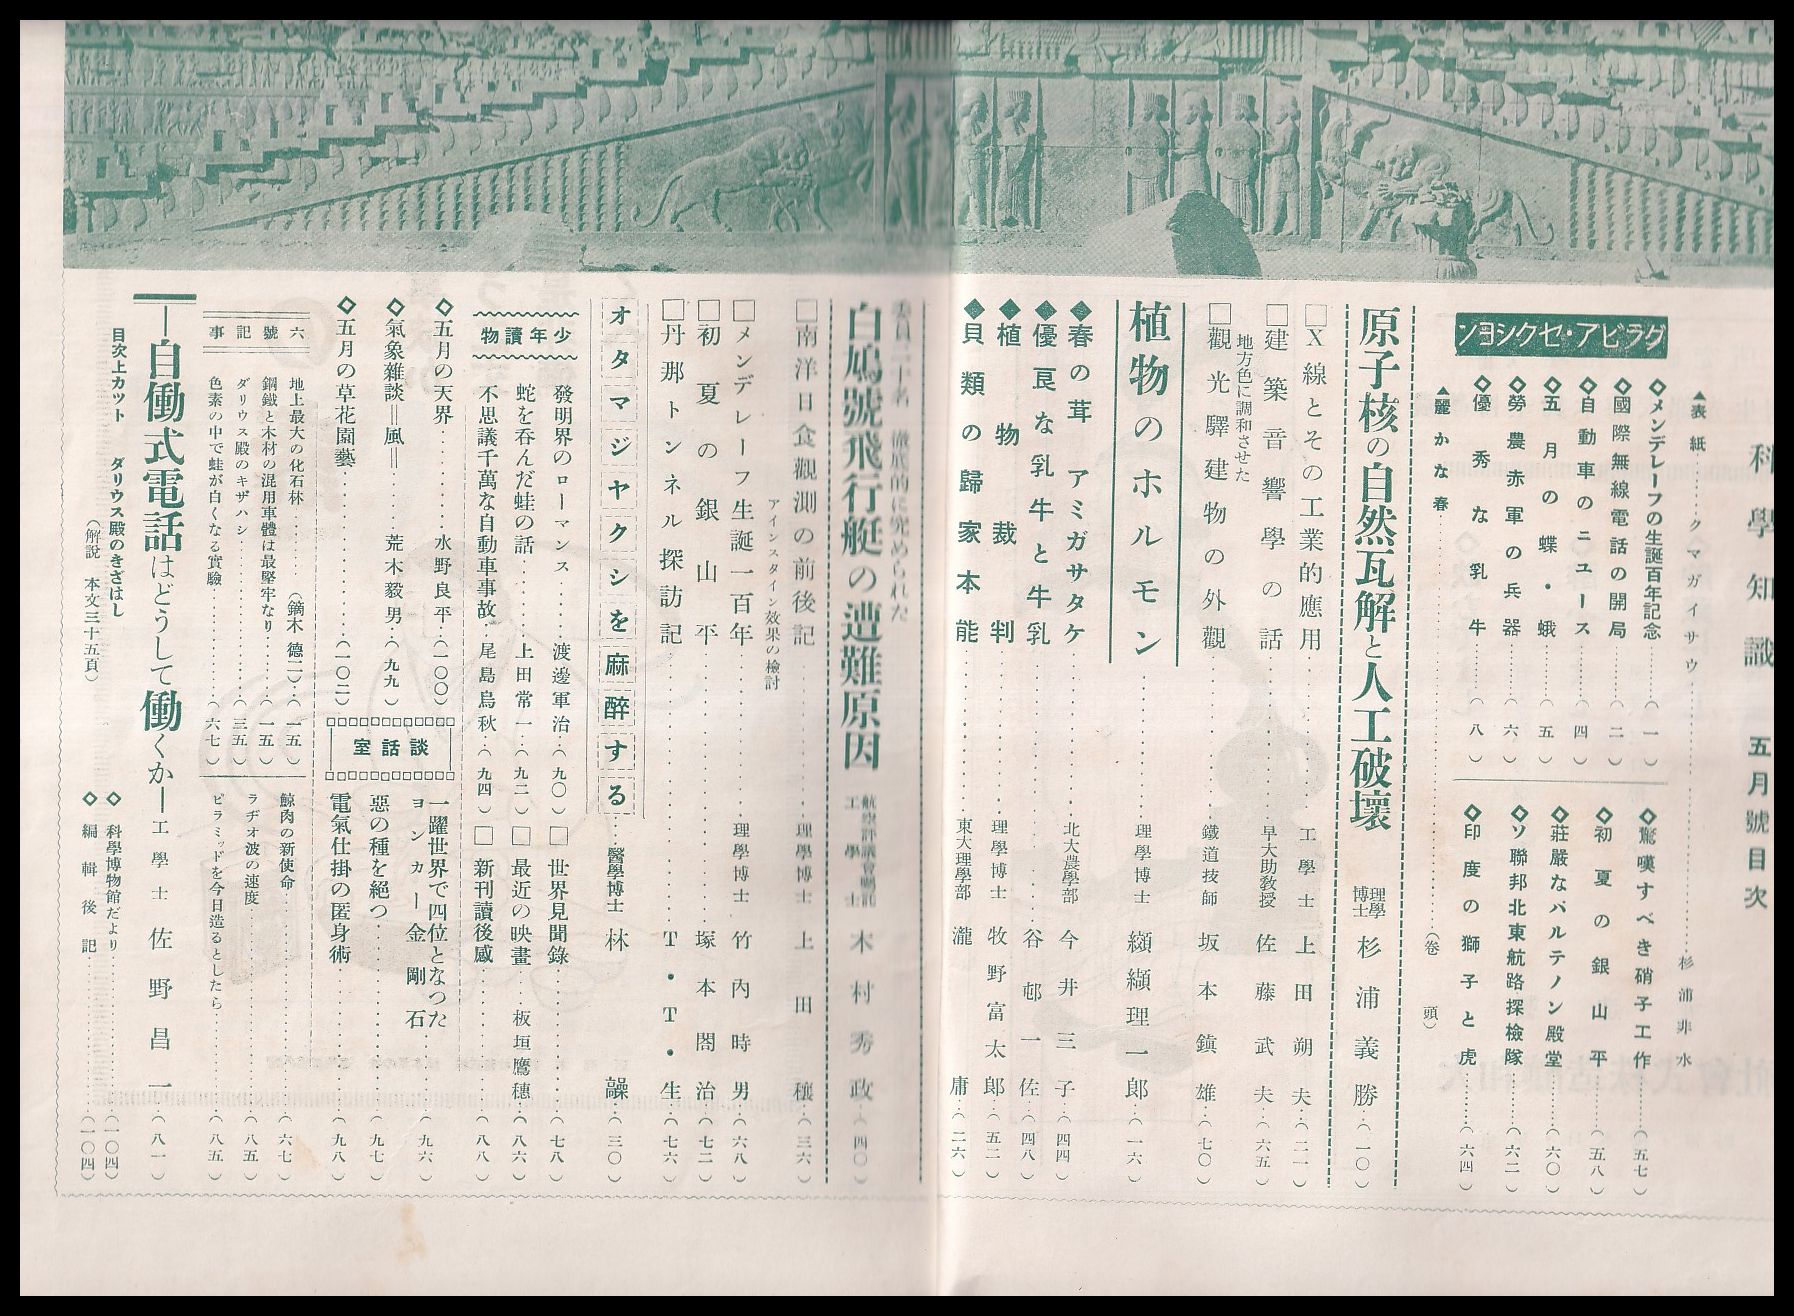 科學知識 五月號目次
▲表紙……クマガイサウ……杉浦非水
グラビア・セクシヨン
◇メンデレーフの生誕百年記念……(一)
◇國際無線電話の開局……(二)
◇自動車のニュース……(四)
◇五月の蝶・蛾……(五)
◇勞農赤軍の兵器……(六)
◇優秀な乳牛……(八)
◇驚嘆すべき硝子工作……(五七)
◇初夏の銀山平……(五八)
◇莊嚴なパルテノン殿堂……(六〇)
◇ソ聯邦北東航路探檢隊……(六二)
◇印度の獅子と虎……(六四)
▲麗かな春……(卷頭)
原子核の自然瓦解と人工破壞 理學博士 杉浦義勝…(一〇)
□X線とその工業的應用……工學士 上田朔夫…(二一)
□建築音響學の話……早大助教授 佐藤武夫…(六五)
地方色に調和させた
□觀光驛建物の外觀……鐵道技師 坂本鎭雄…(七〇)
植物のホルモン……理學博士 纐纈理一郎…(一六)
◆春の茸 アミガサタケ……北大農學部 今井三子…(四四)
◆優良な乳牛と牛乳……谷邨一佐…(四八)
◆植物裁判……理學博士 牧野富太郎…(五二)
◆貝類の歸家本能……東大理學部 瀧庸…(二六)
委員二十名 徹底的に究められた
白鳩號飛行艇の遭難原因 航空評議會囑託 工學士 木村秀政…(四〇)
□南洋日食觀測の前後記……理學博士 上田穰…(三六)
アインスタイン效果の檢討
□メンデレーフ生誕一百年……理學博士 竹內時男…(六八)
□初夏の銀山平……塚本閤治…(七二)
□丹那トンネル探訪記……T・T・生…(七六)
オタマジヤクシを麻醉する……醫學博士 林髞…(三〇)
少年讀物
發明界のローマンス……渡邊軍治…(九〇)
蛇を呑んだ蛙の話……上田常一…(九二)
不思議千萬な自動車事故…尾島烏秋…(九四)
□世界見聞錄……(七八)
□最近の映畫……板垣鷹穗…(八六)
□新刊讀後感……(八八)
◇五月の天界……水野良平…(一〇〇)
◇氣象雜談=風=……荒木毅男…(九九)
◇五月の草花園藝……(一〇二)
談話室
一躍世界で四位となつた
ヨンカー金剛石……(九六)
惡の種を絕つ……(九七)
電氣仕掛の匿身術……(九八)
六號記事
地上最大の化石林……(鏑木德二)…(一五)
鋼鐵と木材の混用車體は最堅牢なり…(一五)
ダリウス殿のキザハシ……(三五)
色素の中で蛙が白くなる實驗……(六七)
鯨肉の新使命……(六七)
ラヂオ波の速度……(八五)
ピラミッドを今日造るとしたら……(八五)
―自働式電話はどうして働くか― 工學士 佐野昌一…(八一)
目次上カット ダリウス殿のきざはし
(解說 本文三十五頁)
◇科學博物館だより……(一〇四)
◇編輯後記……(一〇四)